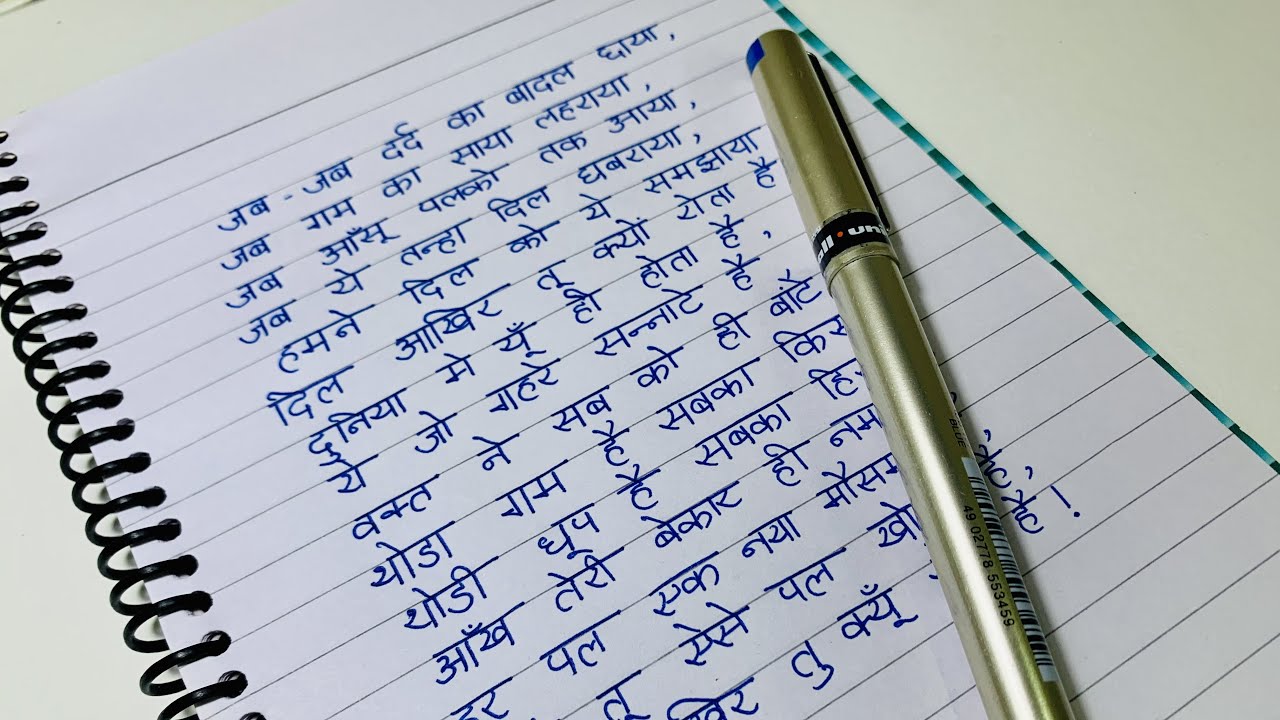 जब - जब दर्द का बादल छाया,
जब गम का साया लहराया,
जब आँसू पलको तक आया,
जब ये तन्हा दिल घबराया,
हमने दिल को ये समझाया
दिल आखिर तू क्यों रोता है
दुनिया मे यूँ ही होता है,
ये जो गहरे सन्नाटे है
वक्त ने सब को ही बाँटे
थोडा गम है सबका
थोडी धूप है सबका
आँख तेरी बेकार ही नम
पल एक नया मौसम है,
तू ऐसे पल है,
तु क्यूँ है !
BLUE
49 02778 553459